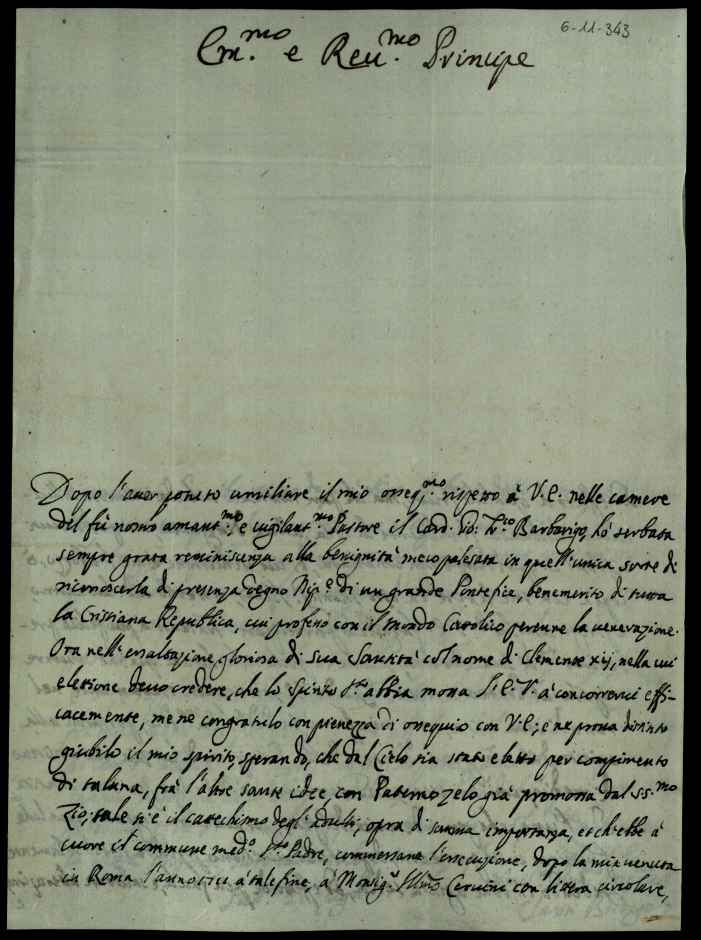 6-11-343
Em.mo e Reu.mo Principe
Dopo l'auer potuto umiliare il mio osseq.mo rispetto à V.E. nelle camere
del fù nostro amant.mo, e uigilant.mo Pastore il Card. Barbarigo, hò serbata
sempre grata reminiscenza alla benignità meco palesata in quell'unica sorte di
riconoscerla di presenza degno Nip.e di un grande Pontefice, benemerito di tutta
la Cristiana Republica, cui professo con il mondo Cattolico perenne la uenerazione.
Ora nell'essaltazione gloriosa di sua Santità col nome di Clemente xij, nella cui
elettione deuo credere, che lo Spirito S.to abbia mossa l'E.V. à concorrerui effi-
cacemente, me ne congratulo con pienezza di ossequio con V.E.; e ne proua distinto
giubilo il mio spirito, sperando, che dal Cielo sia stato eletto per compimento
di taluna, frà l'altre sante idee, con Paterno zelo già promossa dal SS.mo
Zio; tale si è il catechismo degl'Adulti, opra di somma importanza, et ch'ebbe à
cuore il commune med.o S.to Padre, commettere l'essecuzione, dopo la mia uenuta
in Roma l'anno à tale fine, à Monsig.r Ill.mo Ceruini con lettera circolare,